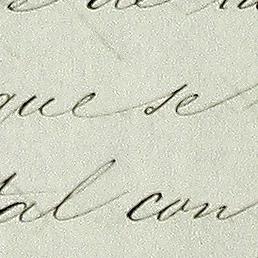 que se
tal con